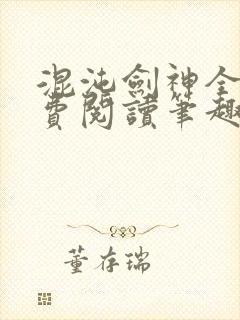 混沌劍神全
費閱讀筆趣
董存瑞